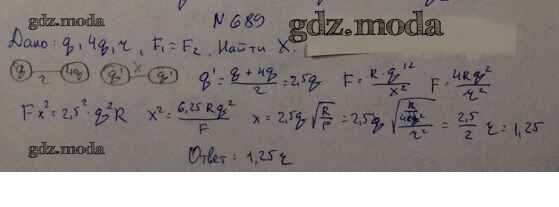 gdz.moda
N 689
gdz.moda
Дано: q, 4q, r, F₁ = F₂. Найти X.
q r 4q q' x q' q' = (q + 4q)/2 = 2,5q F = R q'²/x² F = 4Rq²/r²
Fx² = 2,5² · q²R x² = 6,25Rq²/F x = 2,5q √(R/F) = 2,5q √(R/(4Rq²/r²)) = 2,5/2 r = 1,25
gdz.moda
Ответ: 1,25 r